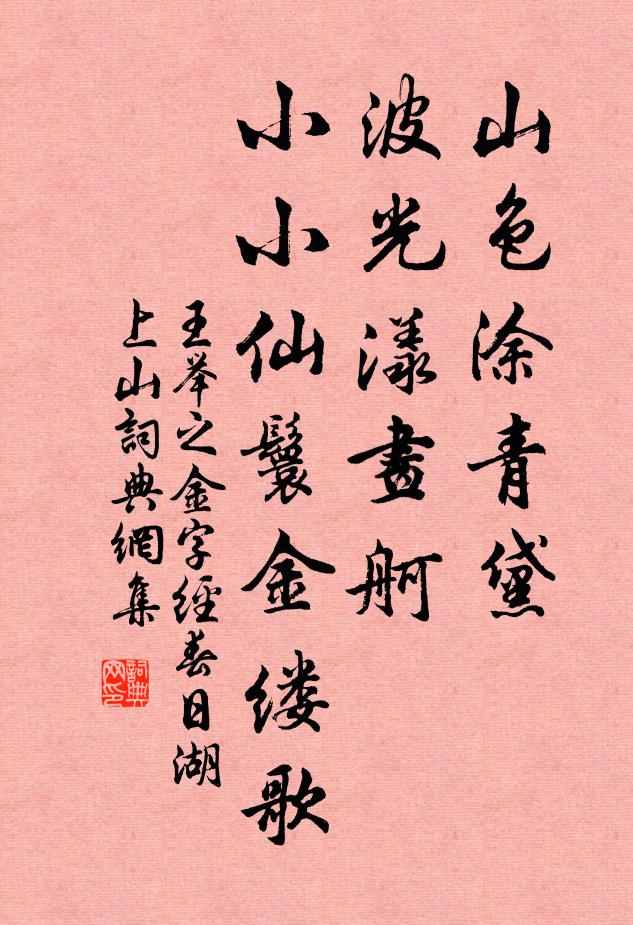 山色涂青黛
波光漾畫舸
小小仙鬟金缕歌
王举之金字經春日湖
上山詞典網集
詞典网印